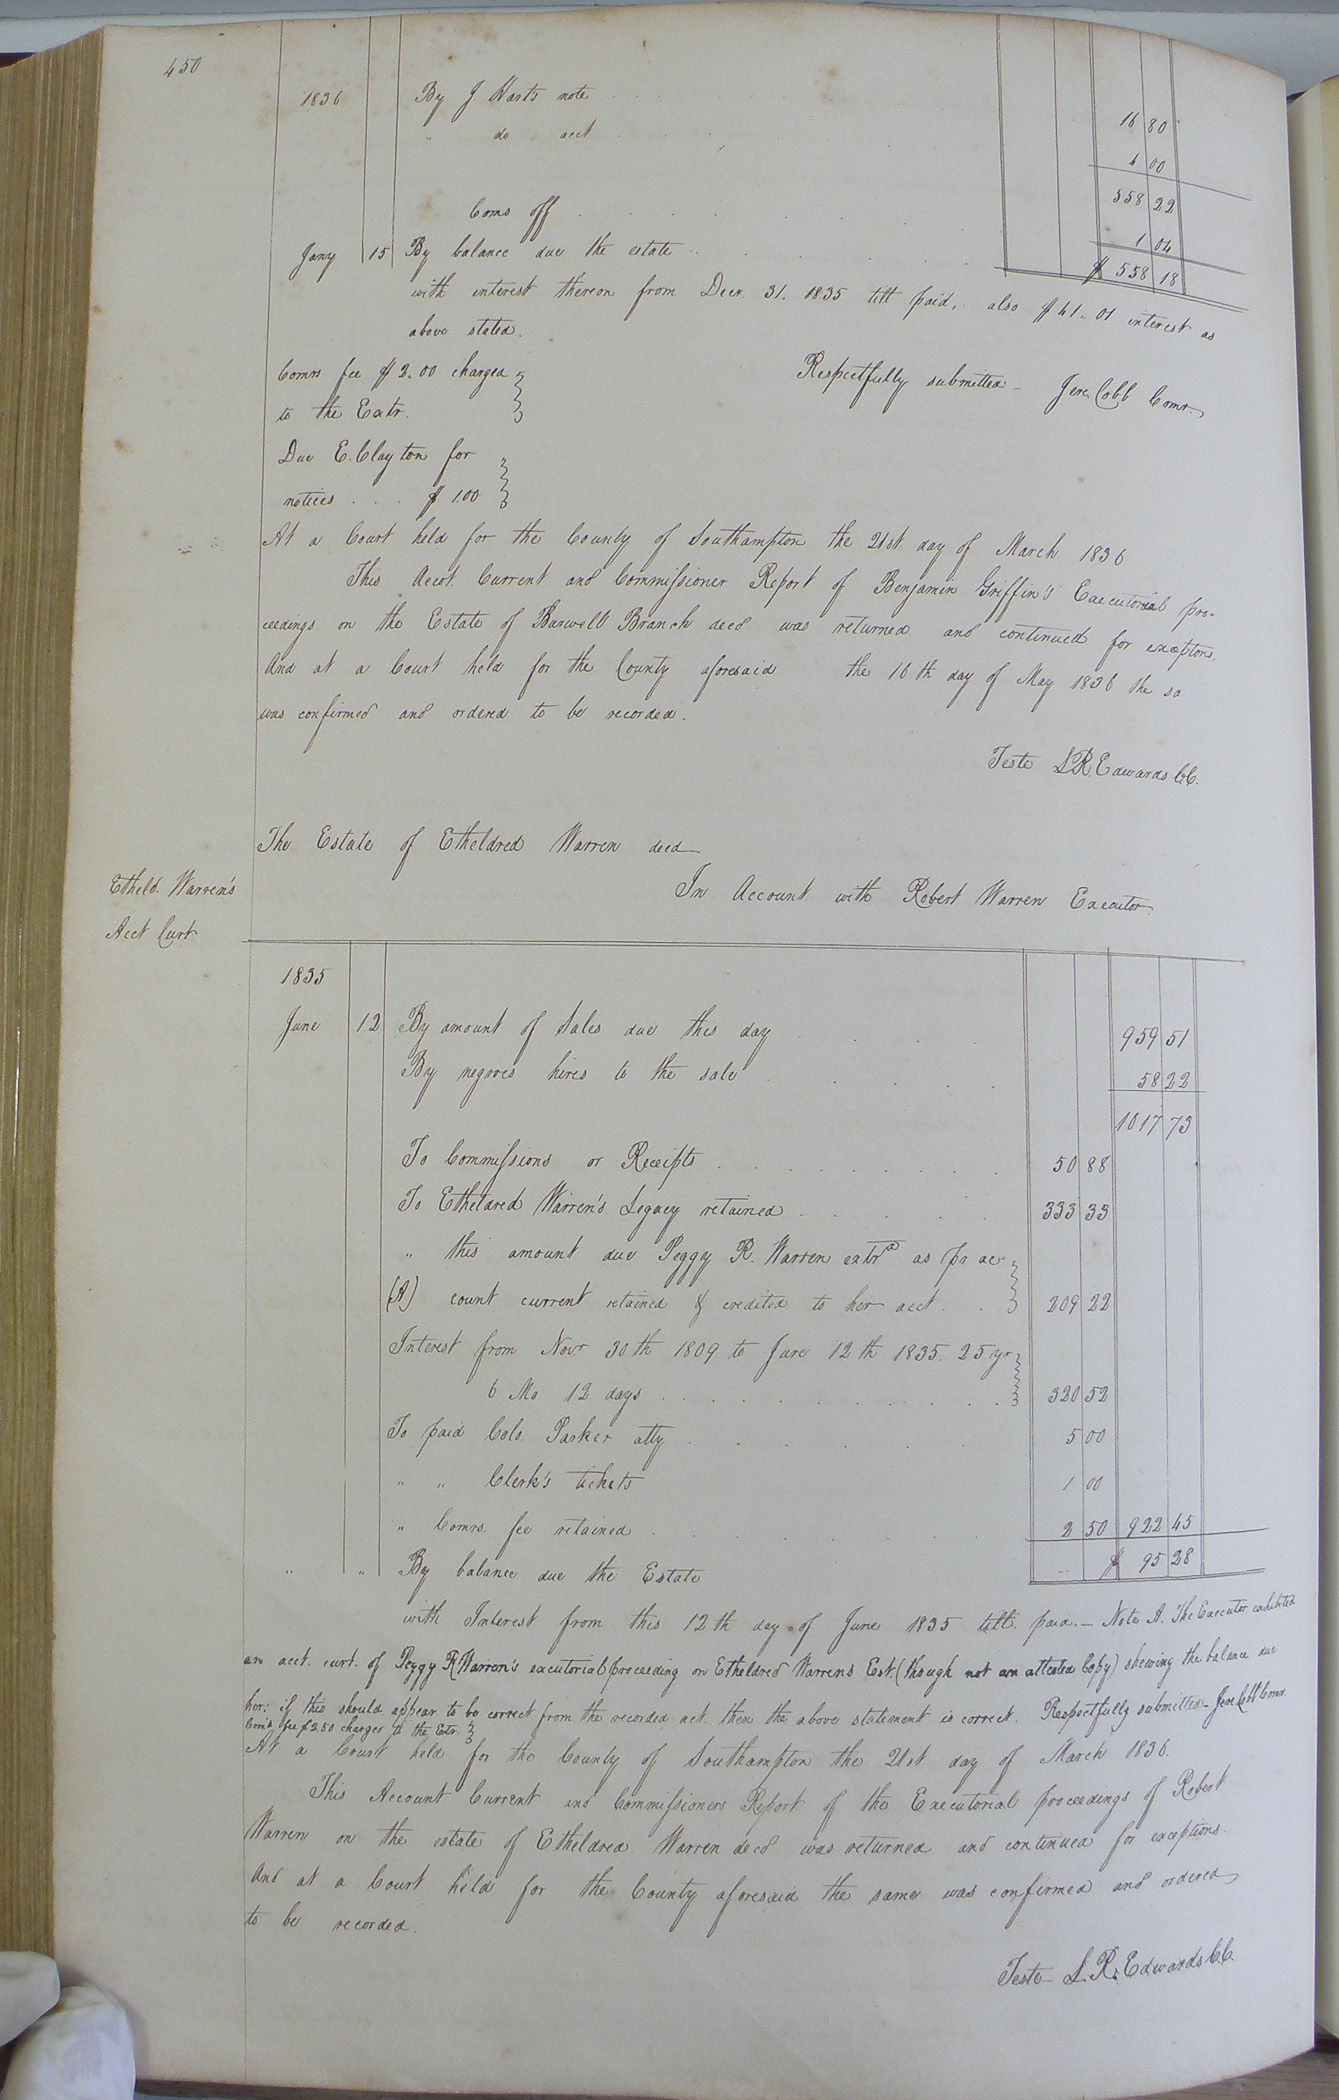 450
1836 By J Harts note 16 80
" do acct 4 00
558 22
Coms off 1 04
Jany 15 By balance due the estate $ 558 18
with interest thereon from Decr. 31. 1835 till paid, also $41.01 interest as
above stated.
Comrs fee $2.00 charged
to the Extr.
Respectfully submitted Jere. Cobb Comr.
Due E. Clayton for
notices . . . $1.00
At a Court held for the County of Southampton the 21st day of March 1836
This Acct. Current and Commissioner Report of Benjamin Griffin's Executorial pro-
ceedings on the Estate of Burwell Branch decd was returned and continued for exceptons.
And at a Court held for the County aforesaid the 16th day of May 1836 the sa
was confirmed and ordered to be recorded.
Teste L R Edwards C.C.
The Estate of Etheldred Warren decd
Etheld. Warren's
Acct Curt
In Account with Robert Warren Executor
1835
June 12 By amount of Sales due this day 959 51
By negroes hires to the sale 58 22
1017 73
To Commissions or Receipts 50 88
To Etheldred Warren's Legacy retained 333 33
" this amount due Peggy R. Warren extrx as pr ac-
(A) count current retained & credited to her acct 209 22
Interest from Novr 30th 1809 to June 12th 1835. 25 yr
6 Mo 12 days 320 52
To paid Colo. Parker atty 5 00
" " Clerk's tickets 1 00
" Comrs. fee retained 2 50 922 45
" " By balance due the Estate $ 95 28
with Interest from this 12th day of June 1835 till paid. — Note A. The Executor exhibited
an acct. curt. of Peggy R Warren's executorial proceeding on Etheldred Warrens Est. (though not an attested Copy) shewing the balance due
her; if this should appear to be correct from the recorded act. then the above statement is correct. Respectfully submitted - Jere Cobb Comr.
Com's fee $2.50 charged to the Extr.
At a Court held for the County of Southampton the 21st day of March 1836.
This Account Current and Commissioners Report of the Executorial proceedings of Robert
Warren on the estate of Etheldred Warren decd was returned and continued for exceptions.
And at a Court held for the County aforesaid the same was confirmed and ordered
to be recorded.
Teste L. R. Edwards C.C.